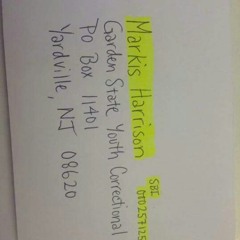 SBI
Markis Harrison 000257125
Garden State Youth Correctional
PO Box 11401
Yardville, NJ 08620